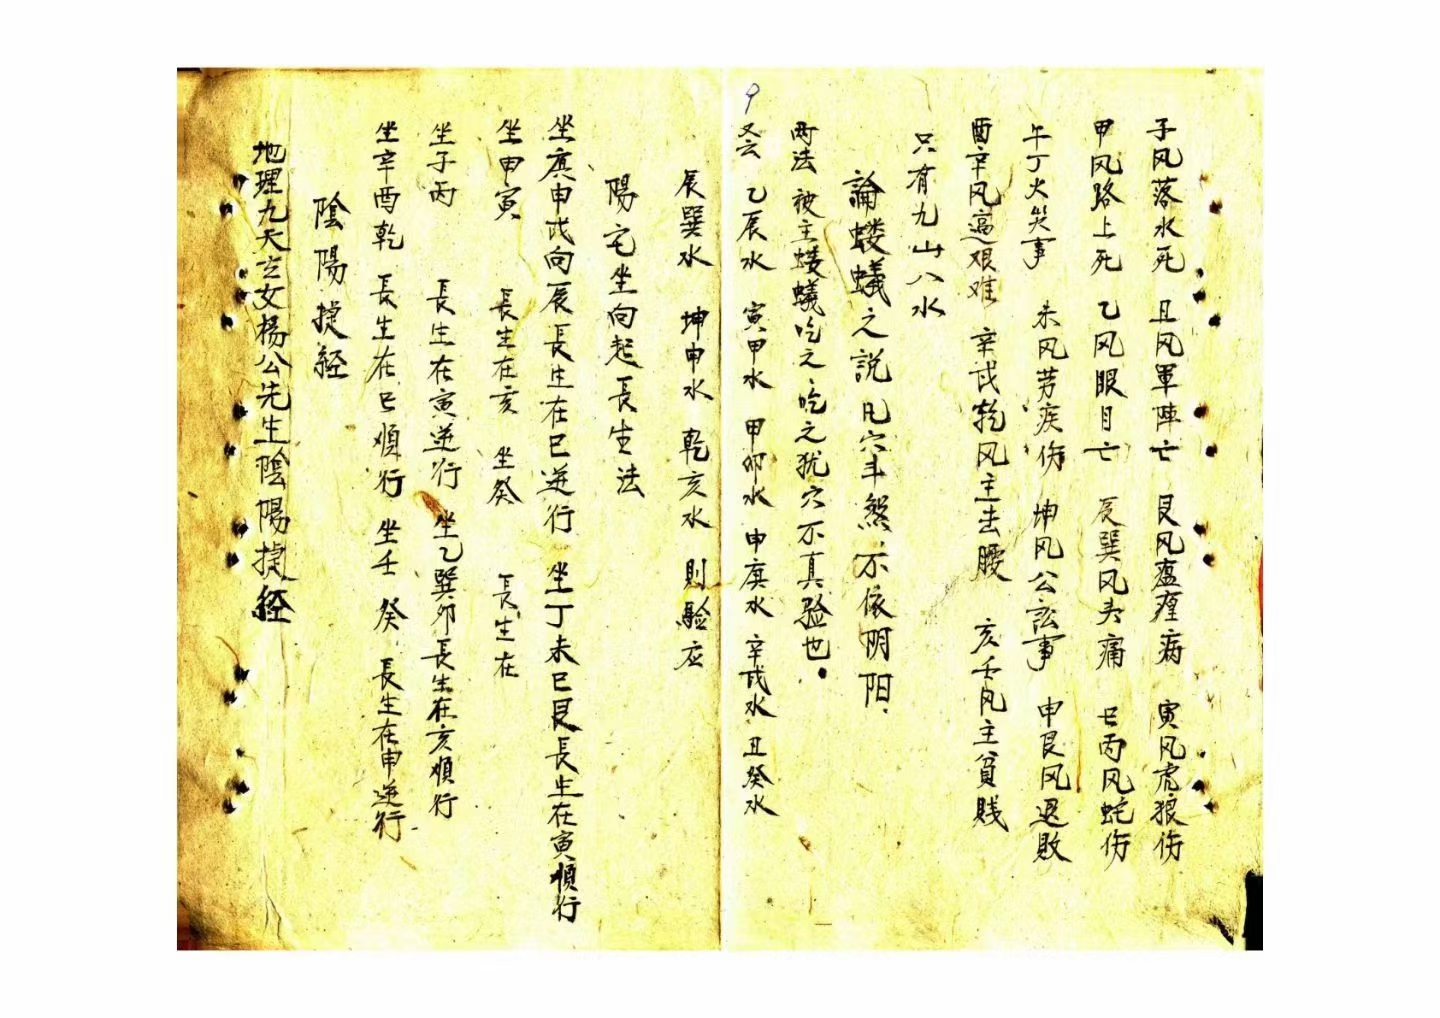 子风落水死 丑风軍陣亡 艮风瘟㾮病 寅风虎狼伤
甲风路上死 乙风眼目亡 辰巽风头痛 巳丙风蛇伤
午丁火災事 未风劳疾伤 坤风公訟事 申艮风退敗
酉辛风逼艰难 辛戌乾风主击腰 亥壬风主貧贱
只有九山八水
論蝼蟻之説 凡穴斗煞 不依阴阳
两法 被主蝼蟻吃之 吃之犹穴不真验也
9
又云 乙辰水 寅甲水 甲卯水 申庚水 辛戌水 丑癸水
辰巽水 坤申水 乾亥水 則驗应
陽宅坐向起長生法
坐庚申戌向辰長生在巳逆行 坐丁未巳艮長生在寅順行
坐甲寅 長生在亥 坐癸 長生在
坐子丙 長生在寅逆行 坐乙巽卯長生在亥順行
坐辛酉乾 長生在巳順行 坐壬 癸 長生在申逆行
陰陽捷經
地理九天玄女楊公先生陰陽捷經